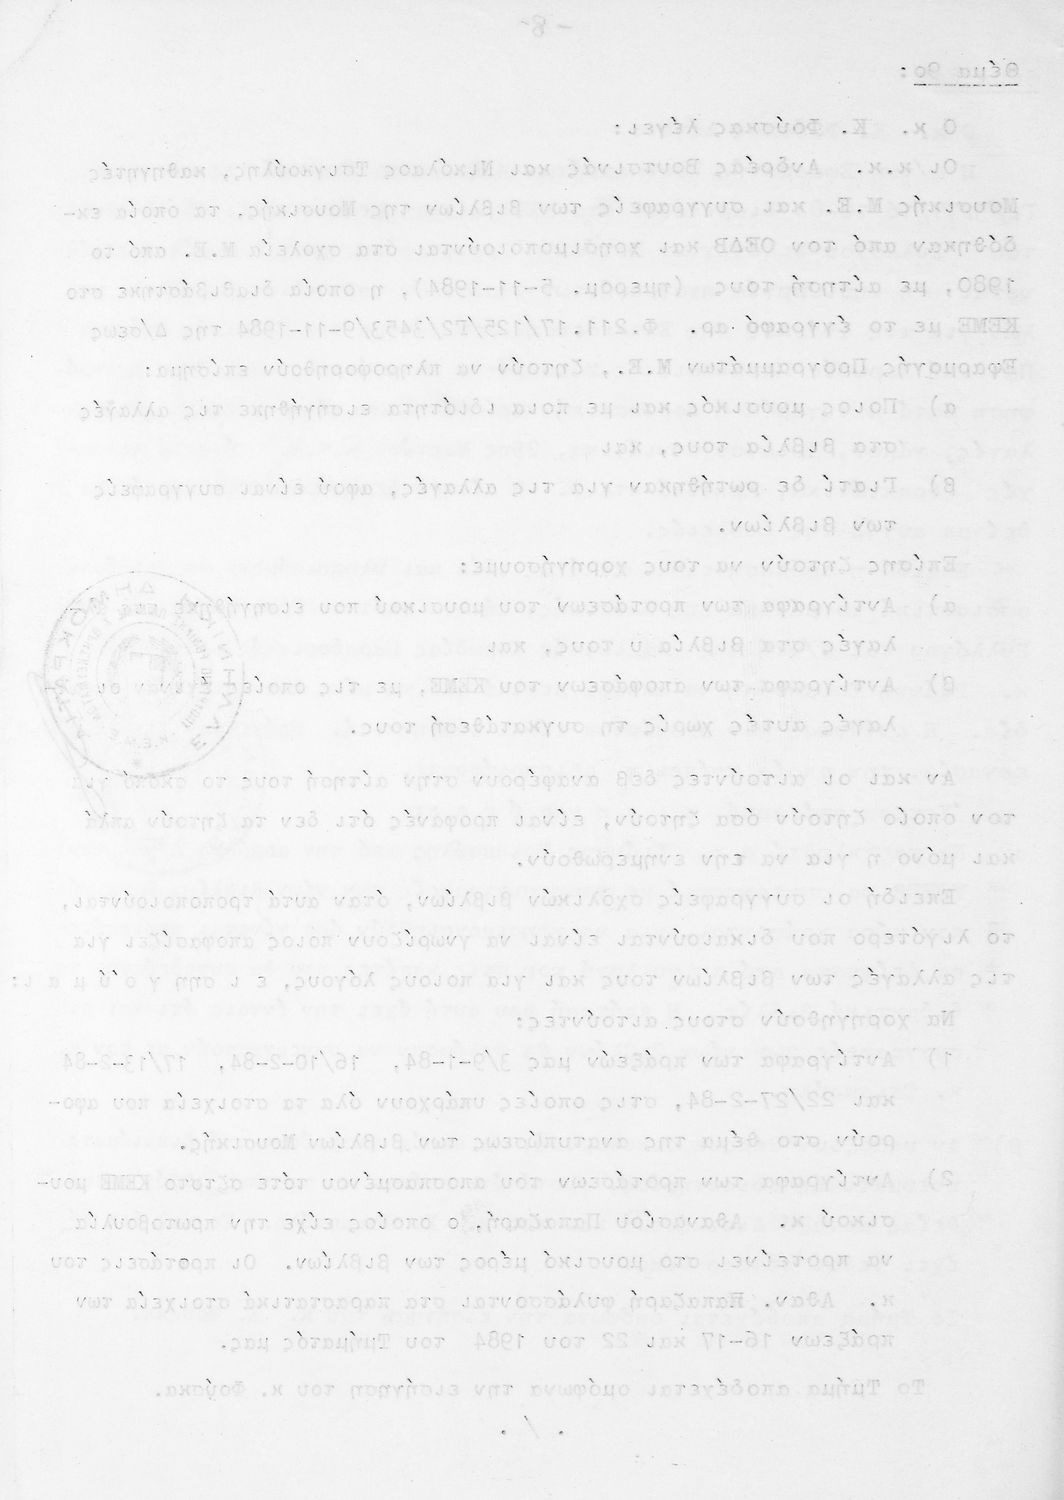 -8-
Θέμα 9ο:
Ο κ. Κ. Φούσκας λέγει:
Οι κ.κ. Ανδρέας Βουτσινάς και Νικόλαος Τσιγκούλης, καθηγητές
Μουσικής Μ.Ε. και συγγραφείς των βιβλίων της Μουσικής, τα οποία εκ-
δόθηκαν από τον ΟΕΔΒ και χρησιμοποιούνται στα σχολεία Μ.Ε. από το
1980, με αίτησή τους (ημερομ. 5-11-1984), η οποία διαβιβάστηκε στο
ΚΕΜΕ με το έγγραφό αρ. Φ.211.17/125/Γ2/3453/9-11-1984 της Δ/σεως
Εφαρμογής Προγραμμάτων Μ.Ε., ζητούν να πληροφορηθούν επίσημα:
α) Ποιος μουσικός και με ποια ιδιότητα εισηγήθηκε τις αλλαγές
στα βιβλία τους, και
β) Γιατί δε ρωτήθηκαν για τις αλλαγές, αφού είναι συγγραφείς
των βιβλίων.
Επίσης ζητούν να τους χορηγήσουμε:
α) Αντίγραφα των προτάσεων του μουσικού που εισηγήθηκε
λαγές στα βιβλία υ τους, και
β) Αντίγραφα των αποφάσεων του ΚΕΜΕ, με τις οποίες έγιναν οι
λαγές αυτές χωρίς τη συγκατάθεσή τους.
Αν και οι αιτούντες δεβ αναφέρουν στην αίτησή τους το σκοπό για
τον οποίο ζητούν όσα ζητούν, είναι προφανές ότι δεν τα ζητούν απλά
και μόνο η για να την ενημερωθούν.
Επειδή οι συγγραφείς σχολικών βιβλίων, όταν αυτά τροποποιούνται,
το λιγότερο που δικαιούνται είναι να γνωρίζουν ποιος αποφασίζει για
τις αλλαγές των βιβλίων τους και για ποιους λόγους, ε ι σηη γ ο ύ μ α ι:
Να χορηγηθούν στους αιτούντες:
1) Αντίγραφα των πράξεών μας 3/9-1-84, 16/10-2-84, 17/13-2-84
και 22/27-2-84, στις οποίες υπάρχουν όλα τα στοιχεία που αφο-
ρούν στο θέμα της ανατυπώσεως των βιβλίων Μουσικής.
2) Αντίγραφα των προτάσεων του αποσπασμένου τότε σζτστό ΚΕΜΕ μου-
σικού κ. Αθανασίου Παπαζαρή, ο οποίος είχε την πρωτοβουλία
να προτείνει στο μουσικό μέρος των βιβλίων. Οι προτάσεις του
κ. Αθαν. Παπαζαρή φυλάσσονται στα παραστατικά στοιχεία των
πράξεων 16-17 και 22 του 1984 του Τμήματός μας.
Το Τμήμα αποδέχεται ομόφωνα την εισήγηση του κ. Φούσκα.
. / .